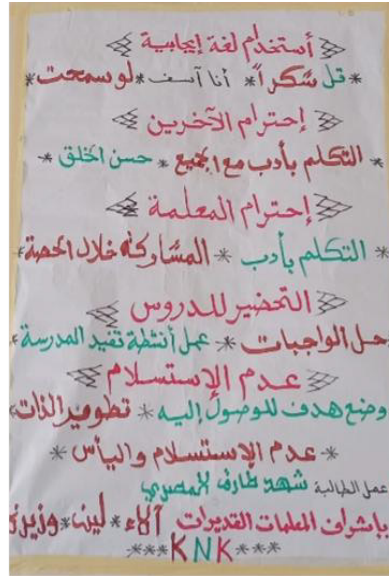 أستخدام لغة إيجابية
*قل شكراً* أنا آسف *لو سمحت*
إحترام الآخرين
* التكلم بأدب مع الجميع * حسن الخلق *
إحترام المعلمة
* التكلم بأدب * المشاركة خلال الحصة*
التحضير للدروس
حل الواجبات * عمل أنشطة تفيد المدرسة*
عدم الإستسلام
وضع هدف للوصول إليه * تطوير الذات*
* عدم الإستسلام واليأس *
عمل الطالبة شهد طارق المصري
بإشراف المعلمات القديرات آلاء * لينا *
***KNK***